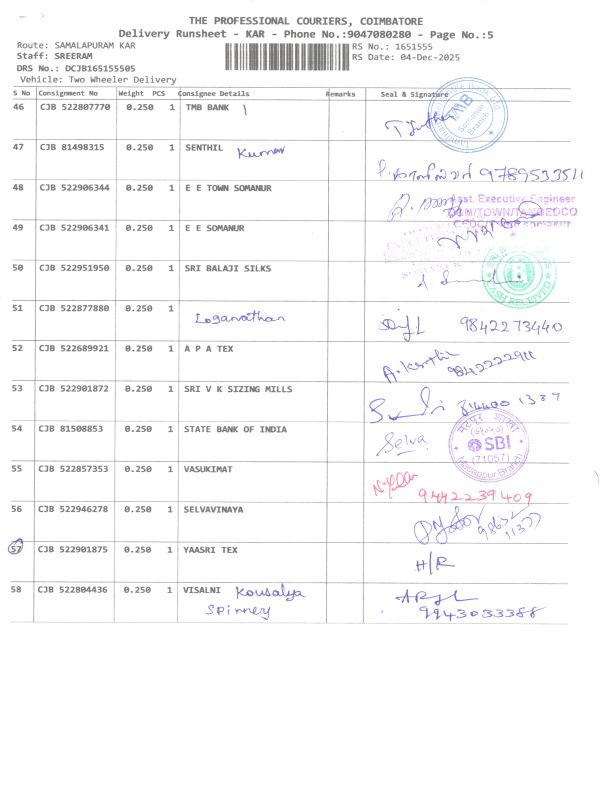 THE PROFESSIONAL COURIERS, COIMBATORE
Delivery Runsheet - KAR - Phone No.:9047080280 - Page No.:5
Route: SAMALAPURAM KAR RS No.: 1651555
Staff: SREERAM RS Date: 04-Dec-2025
DRS No.: DCJB165155505
Vehicle: Two Wheeler Delivery
S No Consignment No Weight PCS Consignee Details Remarks Seal & Signature
46 CJB 522807770 0.250 1 TMB BANK TMB Somanur Branch
47 CJB 81498315 0.250 1 SENTHIL Kumar 9789533511
48 CJB 522906344 0.250 1 E E TOWN SOMANUR Asst. Executive Engineer
O&M/TOWN/TANGEDCO
49 CJB 522906341 0.250 1 E E SOMANUR
50 CJB 522951950 0.250 1 SRI BALAJI SILKS CASH RECEIVED
51 CJB 522877880 0.250 1 Loganathan 9842273440
52 CJB 522689921 0.250 1 A P A TEX A. Karthi 9842222911
53 CJB 522901872 0.250 1 SRI V K SIZING MILLS
54 CJB 81508853 0.250 1 STATE BANK OF INDIA Selva SBI (71057)
55 CJB 522857353 0.250 1 VASUKIMAT 9442239409
56 CJB 522946278 0.250 1 SELVAVINAYA
57 CJB 522901875 0.250 1 YAASRI TEX H/R
58 CJB 522804436 0.250 1 VISALNI Kousalya
Spinney 9943033388